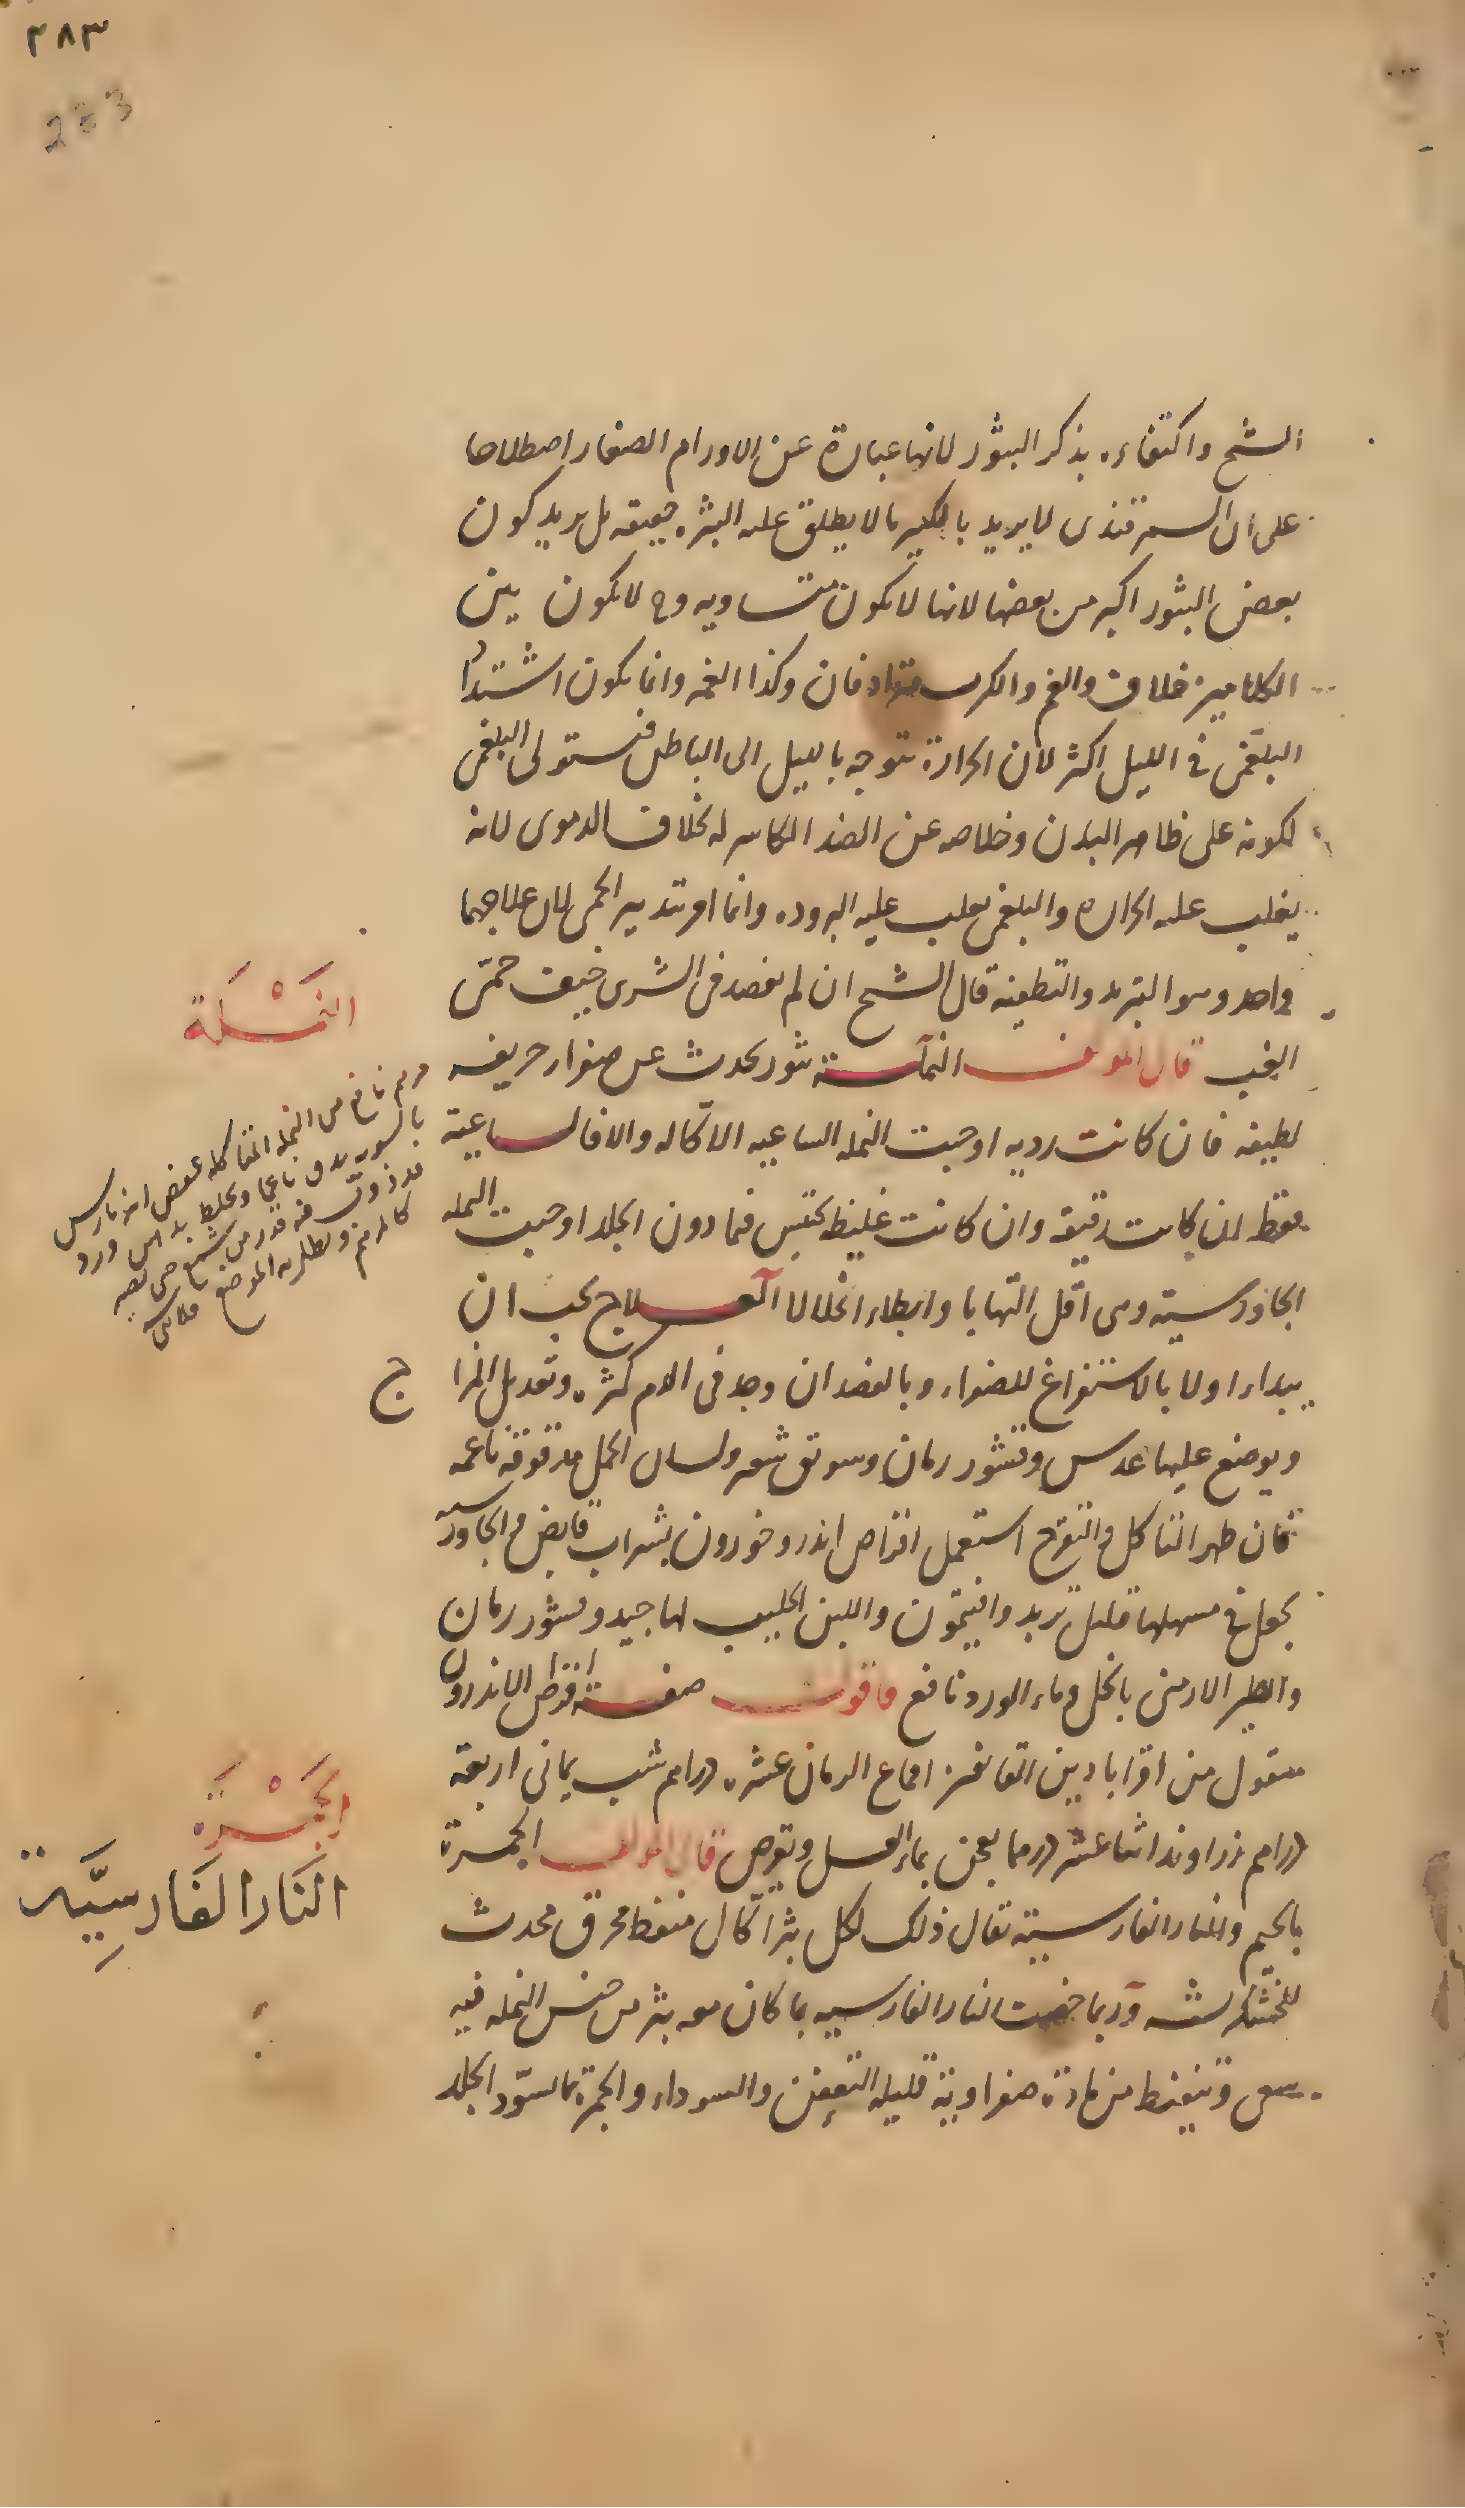 ٢٨٣
283
الشيخ واكتفاءه بذكر البثور لانها عبارة عن الاورام الصغار اصطلاحا
على ان السمرقندى لا يريد بالكبير ما لا يطلق عليه البثره حقيقه بل يريد كون
بعض البثور اكبر من بعضها لانها لا تكون متساويه وح لا يكون بين
الكلامين خلاف والغم والكرب مترادفان وكذا الغمه وانما يكون اشتداد
البلغمى فى الليل اكثر لان الحرارة تتوجه بالليل الى الباطن فيستولى البلغمى
لكونه على ظاهر البدن وخلاصه عن الضد الكاسر له بخلاف الدموى لانه
يغلب عليه الحرارة والبلغمى يغلب عليه البروده وانما امر بتدبير الحمى لان علاجهما
واحد وهو التبريد والتطفيه قال الشيخ ان لم يفصد فى الشرى خيف حمى
الغب قال المولف النملة بثور تحدث عن صفراء حريفه
لطيفه فان كانت رديه اوجبت النمله الساعيه الاكاله والا فالساعية
فقط ان كانت رقيقه وان كانت غليظه تحتبس فيما دون الجلد اوجبت النمله
الجاورسيته وهى اقل التهابا وابطاء انحلالا العلاج يجب ان
يبداء اولا بالاستفراغ للصفراء وبالفصد ان وجد فى الدم كثره وتعديل المزا
ج
ويوضع عليها عدس وقشور رمان وسويق شعير ولسان الحمل مدقوقه ناعمه
فان ظهر التاكل والتقرح استعمل اقراص اندروخورون بشراب قابض والجاورسيه
يجعل فى مسهلها قليل تربد وافتيمون واللبن الحليب لها جيد وقشور رمان
والطين الارمنى بالخل وماء الورد نافع صفة اقراص الاندرون
منقول من اقراباذين القلانسى اقماع الرمان عشره دراهم شب يمانى اربعة
دراهم زراوند اثنا عشر درهما يعجن بماء العسل ويقرص قال المولف الجمرة
بالجيم والنار الفارسيته يقال ذلك لكل بثر اكال منفط محرق محدث
للخشكريشه وربما خصت النار الفارسيه بما كان معه بثر من جنس النمله فيه
سعى وتنفط من مادة صفراوية قليلة التعفن والسوداء والجمرة بما يسود الجلد
النملة
مرهم نافع من النمله المتاكله عفص
كالمرهم ويطلى به الموضع
الجمره
النار الفارسيَّة